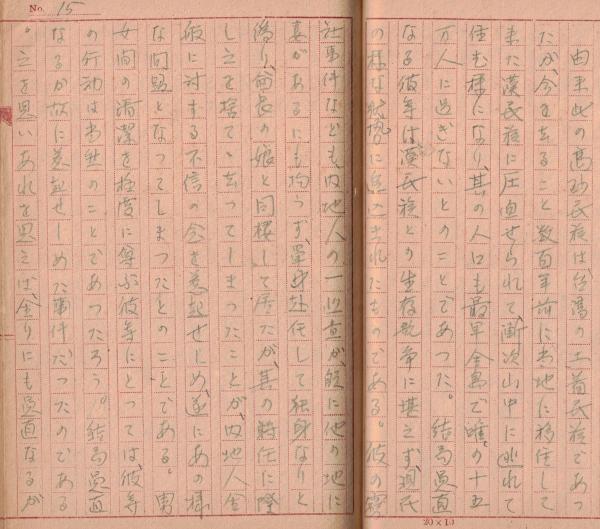 No. 15
由来此の高砂民族は、台湾の土着民族であつ
たが、今を去ること数百年前に当地に移住して
来た漢民族に圧迫せられて、漸次山中に逃れて
住む様になり、其の人口も最早全島で唯の十五
万人に過ぎないとのことであつた。結局愚直
なる彼等は、漢民族との生存競争に堪えず、現民
の様な状勢に追込まれたものである。彼の霧
社事件なども、内地人の一巡査が、既に他の地に
妻があるにも拘らず、単身赴任して独身なりと
偽り、酋長の娘と同棲して居たが、其の転任に際
し之を捨てゝ去つてしまつたことが、内地人全
般に対する不信の念を惹起せしめ、遂にあの様
な問題となつてしまつたとのことである。男
女間の清潔を極度に尊ぶ彼等にとつては、彼等
の行動は当然のことであつたろう。結局愚直
なるが故に惹起せしめた事件だつたのである
。之を思いあれを思えば、余りにも愚直なるが
20×10